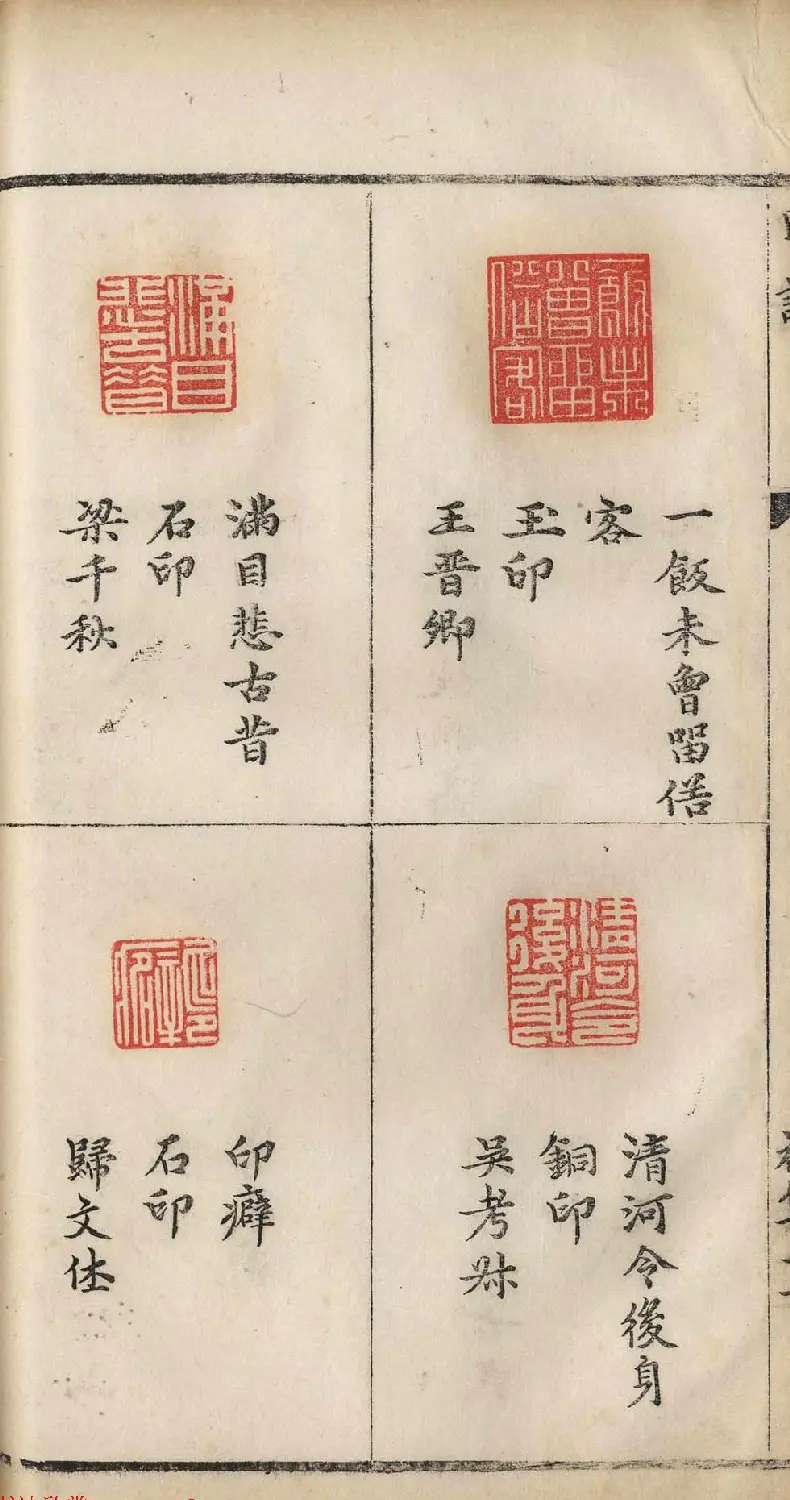 一飯未曾畱俗
客
玉印
王晉卿
滿目悲古昔
石印
梁千秋
清河令後身
銅印
吳考叔
印癖
石印
歸文休